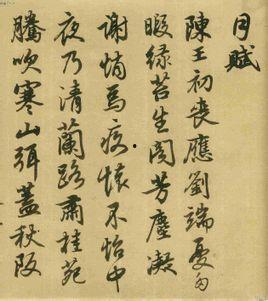 月賦
陳王初喪應劉端憂多
暇綠苔生閣芳塵凝
謝悄焉疚懷不怡中
夜乃清蘭路肅桂苑
騰吹寒山弭蓋秋阪